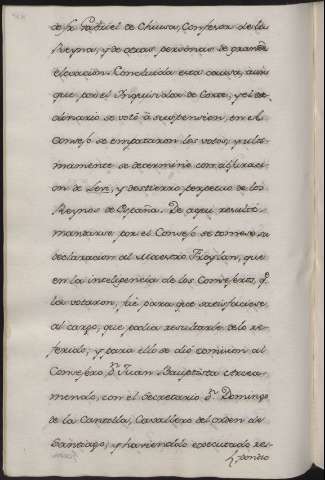 de fr. Gabriel de Chiusa, Confesor de la
Reyna, y de otras personas de grande
elevacion. Concluida esta causa, aun
que por el Inquisidor de Corte, y el or-
dinario se votó á suspension, en el
Consejo se empataron los votos, y ulti-
mamente se determinó con abjuraci-
on de Levi, y destierro perpetuo de los
Reynos de España. De aqui resultó
mandarse por el Consejo se tomese su
declaracion al Maestro Froylan, que
en la inteligencia de los Consejeros, q.e
la votaron, fué para que satisfaciese
al cargo, que podia resultarle de lo re-
ferido, y para ello se dió comision al
Consejero D.n Juan Bauptista Arcea-
mendi, con el Secretario D.n Domingo
de la Cantolla, Cavallero del orden de
Santiago, y haviendolo executado res-
pondio